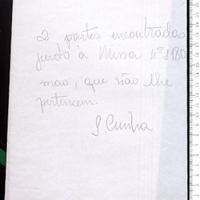 2 partes encontradas
junto à Missa nº 180
mao, que não lhe
pertencem.
S. Cunha